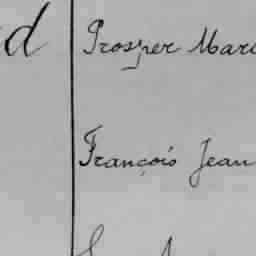 d Prosper Mari
François Jean